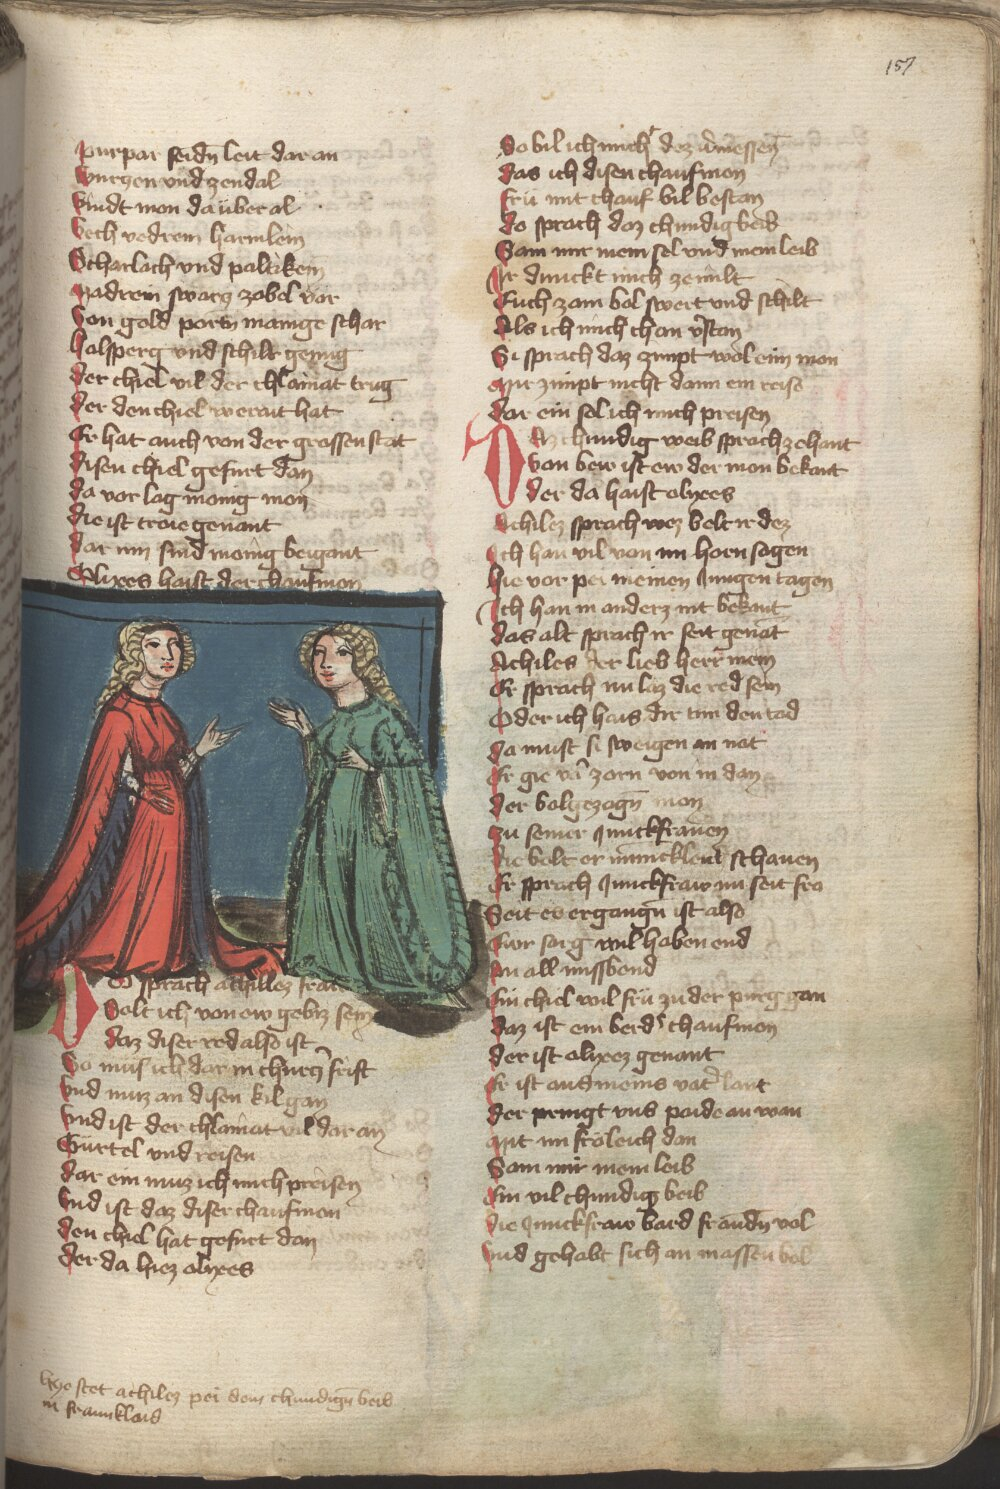 157
Purpar seidn̄ leit dar an
Wurgen vnd zendal
Vindt mon da über al
Vech vedrein harmlein
Scharlach vnd paltikein
Nadrein swarcz zobel vor
Von gold portn̄ manige schar
halsperg vnd schilt genug
der chiel vil der chlainat trug
der den chiel werait hat
Er hat auch von der grassen stat
disen chiel gefurt dan
da vor lag monig mon
die ist troie genant
dar inn sind monig beigant
Vlixes haist der chaufmon
DO sprach achillez fraw
Wolt ich von ew gebiz sein
daz diser red also ist
So mus ich dar in churczer frist
vnd muz an disen kil gan
Vnd ist der chlainat vil dar an
Gürtel vnd reisen
dar ein muz ich mich preisen
Vnd ist daz diser chaufmon
den chiel hat gefurt dan
der da hiez vlixes
hye stet achilez pei dem chundign̄ beib
in fraunklaid
So bil ich mich dez vͦmessen
das ich disen chaufmon
frü mit chauf bil bestan
do sprach daz chundig beib
Sam mir mein sel vnd mein leib
Ir dunckt mich ze milt
Euch zam bol swert vnd schilt
Als ich mich chan vͦstan
Si sprach daz zimpt wol eim mon
Mir zimpt nicht dann ein reise
dar ein sol ich mich preisen
DAz chundig weib sprach zehant
von bew ist ew der mon bekant
der da haist vlixes
Achilez sprach wez belt ir dez
Ich han vil von im horn sagen
hie vor pei meinen jungen tagen
Ich han in anderz nit bekant
das alt sprach ir seit genāt
Achiles der lieb herr mein
Er sprach nu laz die red sein
Oder ich hais dir tun den tod
da must si sweigen an not
Er gie vͦ zorn von in dan
der bolgezogn̄ mon
zu seiner junckfrauen
die bolt er schauen
Er sprach junckfraw nu seit fro
Seit ez ergangn̄ ist also
Ewr sarg wil haben end
An all missbend
Ein chiel wil frü zu der purg gan
daz ist ein berdͬ chaufmon
der ist vlixez genant
Er ist aus meins vatͬ lant
der pringt vns paide an wan
Mit im fröleich dan
Sam mir mein leib
Ein vil chundig beib
die junckfraw bard fraudn̄ vol
Vnd gehabt sich an massen bol